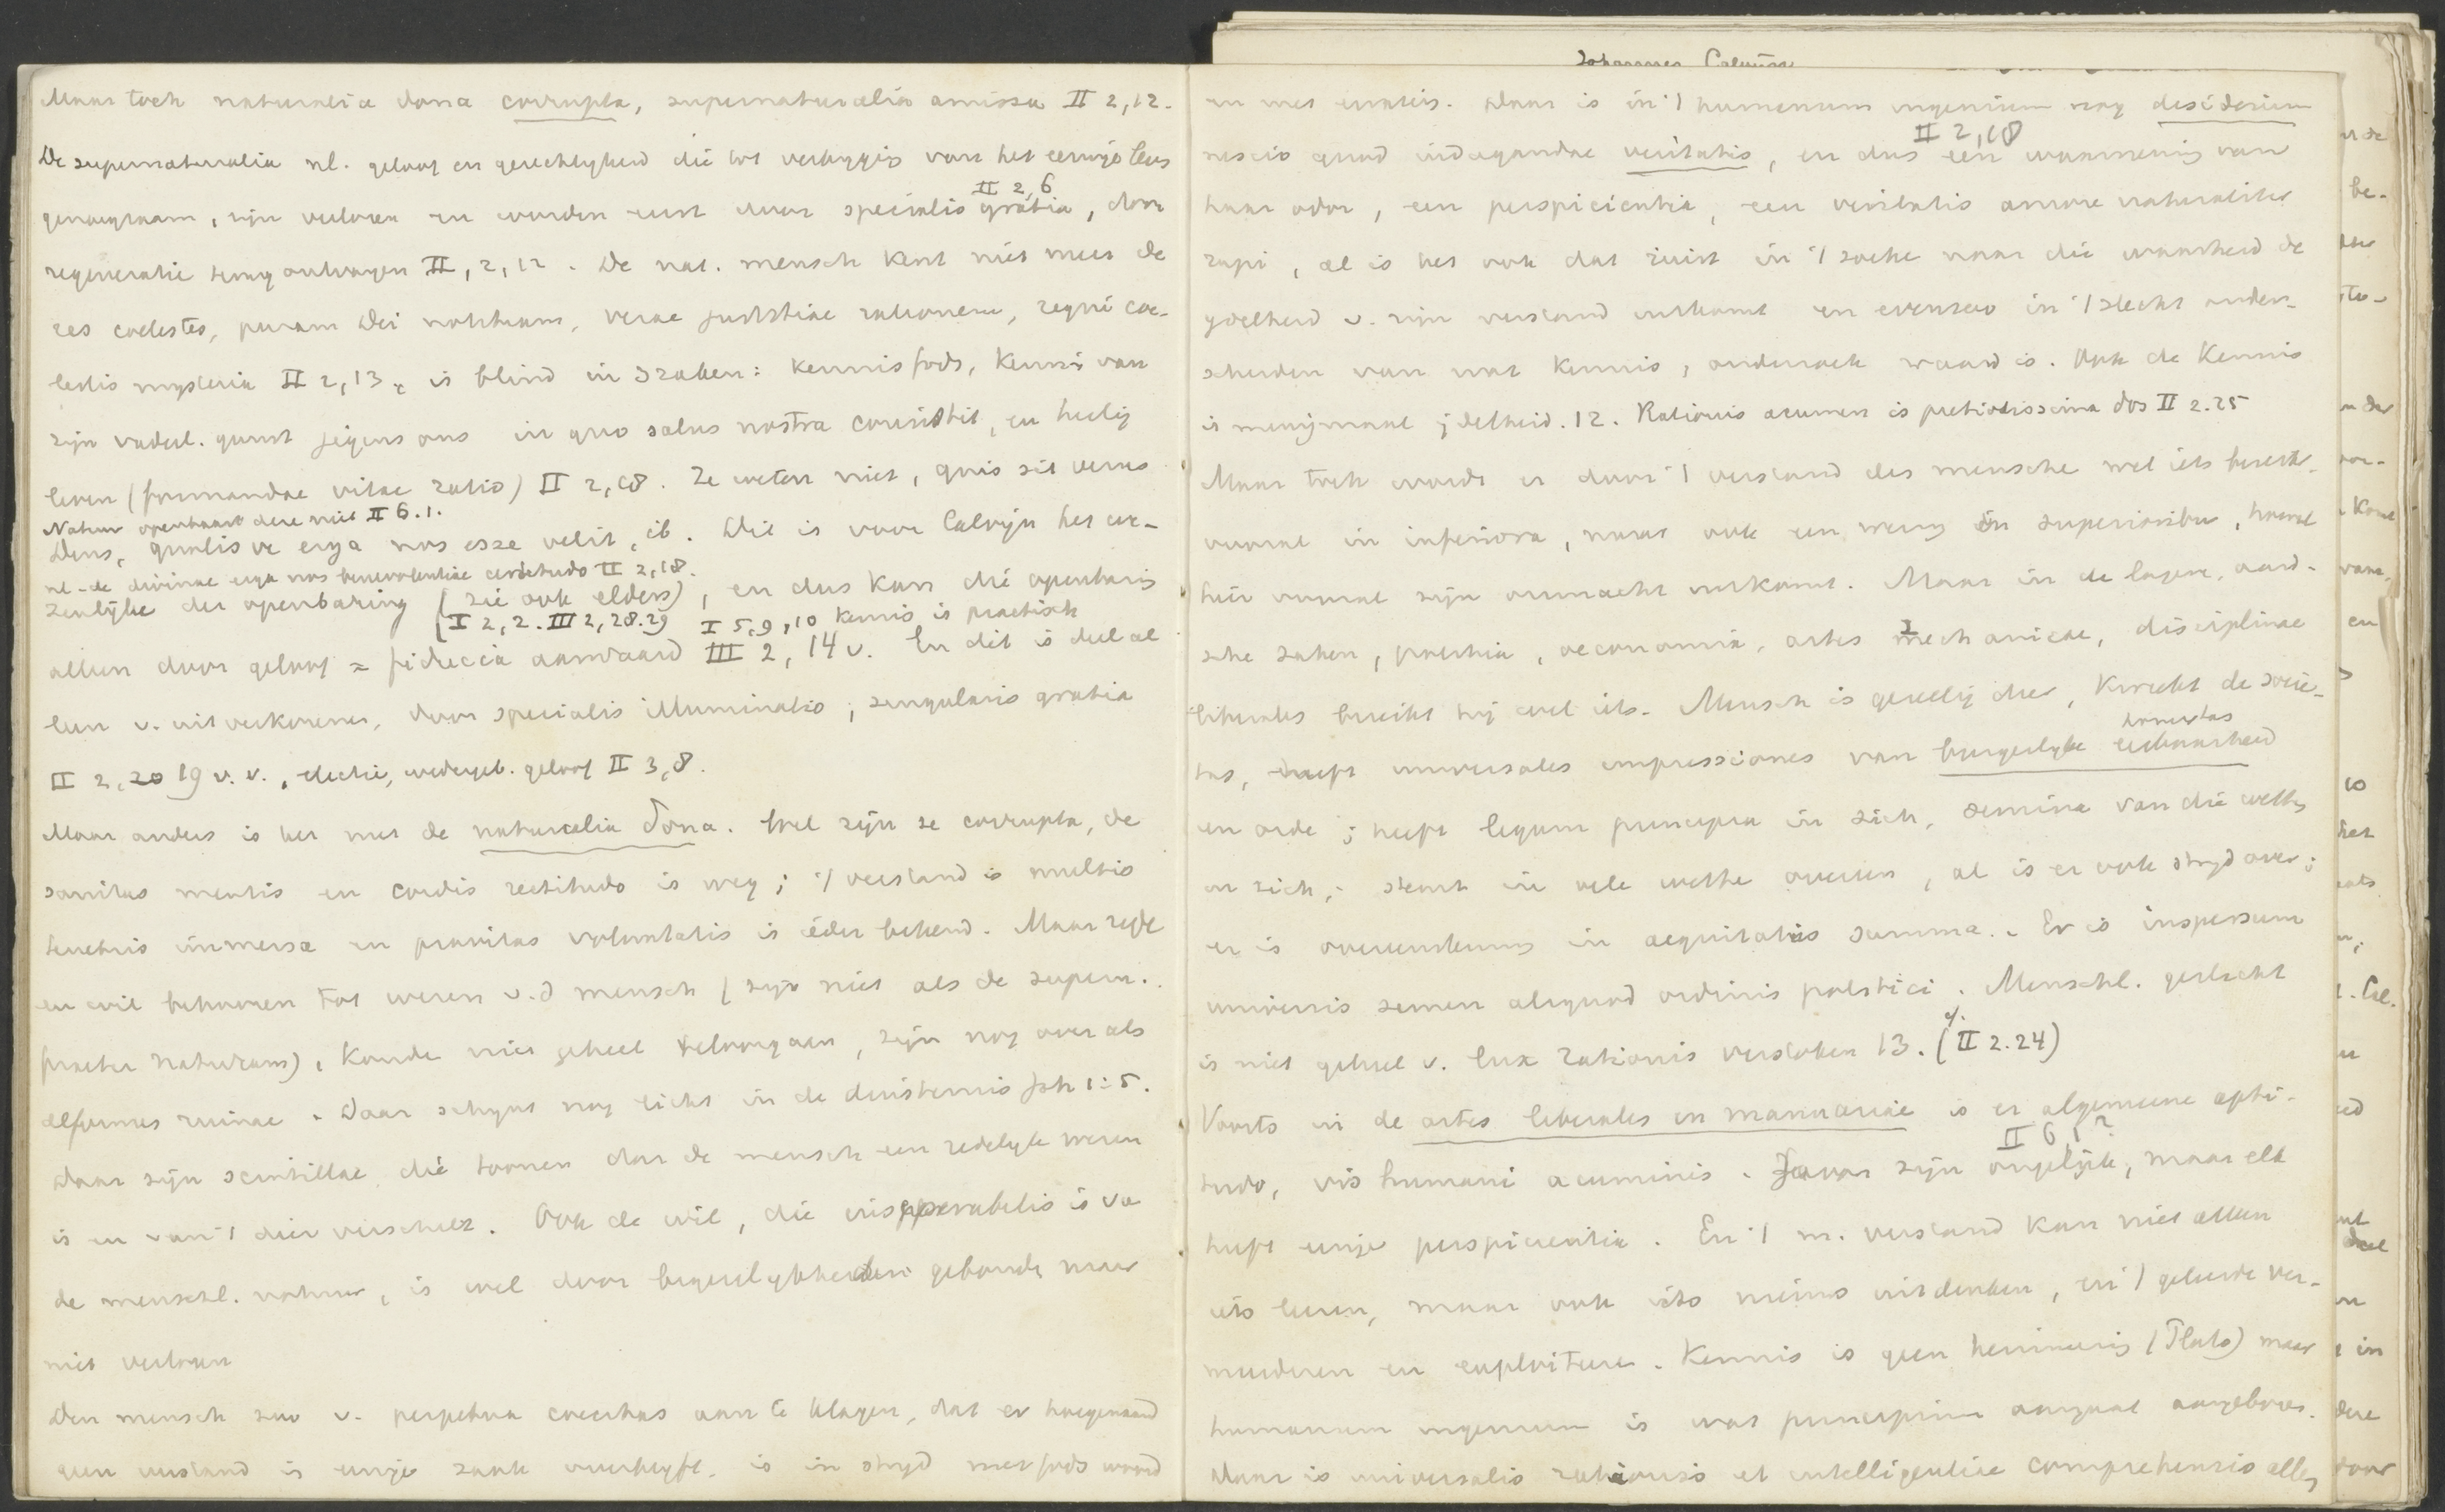 Maar toch naturalia dona corrupta, supernaturalia amissa II 2,12.
De supernaturalia nl. geloof en gerechtigheid die tot verkrijging van het eeuwige leven
II 2,6
genoegzaam, zijn verloren en worden eerst door specialis gratia, door
regeneratie terug ontvangen II, 2, 12. De nat. mensch kent niet meer de
res coelestes, puram Dei notitiam, verae justitiae rationem, regni coe-
lestis mysteria II 2,13, is blind in 3 zaken: kennis Gods, kennis van
zijn vaderl. gunst jegens ons in quo salus nostra consistit, en heilig
leven (formandae vitae ratio) II 2,18. Ze weten niet, quis sit verus
Natuur openbaart deze niet II 6.1.
Deus, qualisve erga nos esse velit, ib. Dit is voor Calvijn het we-
nl. de divinae erga nos benevolentiae certitudo II 2,18.
zenlijke der openbaring (zie ook elders), en dus kan die openbaring
(I 2,2. III 2,28.29 I 5,9,10 Kennis is practisch
alleen door geloof = fiducia aanvaard III 2, 14 v. En dit is deel al-
leen v. uitverkorenen, door specialis illuminatio, singularis gratia
II 2,20 19 v.v., electie, wedergeb. geloof II 3,8.
Maar anders is het met de naturalia dona. Wel zijn ze corrupta, de
sanitas mentis en cordis rectitudo is weg; 't verstand is multis
tenebris immersa en pravitas voluntatis is ieder bekend. Maar rede
en wil behooren tot wezen v.d mensch (zijn niet als de supern.
praeter naturam), konden niet geheel teloorgaan, zijn nog over als
deformes ruinae. Daar schijnt nog licht in de duisternis Joh 1:5.
Daar zijn scintillae, die toonen dat de mensch een redelijk wezen
is en van 't dier verschilt. Ook de wil, die inseparabilis is va
de menschl. natuur, is wel door begeerlijkheden gebonden maar
niet verloren
Den mensch zoo v. perpetua coecitas aan te klagen, dat er hoegenaamd
geen verstand in eenige zaak overblijft, is in strijd met Gods woord
Johannes Calvijn
en met ervaring. Daar is in 't humanum ingenium nog desiderium
II 2,18
nescio quod indagandae veritatis, en dus een waarneming van
haar odor, een perspicientia, een veritatis amore naturaliter
rapi, al is het ook dat juist in 't zoeken naar die waarheid de
ijdelheid v. zijn verstand uitkomt en evenzoo in 't slecht onder-
scheiden van wat kennis, onderzoek waard is. Ook de kennis
is menigmaal ijdelheid. 12. Rationis acumen is pretiosissima dos II 2.25
Maar toch wordt er door 't verstand des menschen wel iets bereikt.
vooral in inferiora, maar ook een weinig in superioribus, hoewel
hier vooral zijn onmacht uitkomt. Maar in de lagere, aard-
sche zaken, politia, oeconomia, artes mechanicae, disciplinae
liberales bereikt hij wel iets. Mensch is gezellig dier, kweekt de socie-
honestas
tas, heeft universales impressiones van burgerlijke eerbaarheid
en orde; heeft legum principia in zich, semina van die wetten
in zich; stemt in vele wetten overeen, al is er ook strijd over;
er is overeenstemming in aequitatis summa. Er is inspersum
universis semen aliquod ordinis politici. Menschl. geslacht
is niet geheel v. lux rationis verstoken 13. (cf. II 2.24)
Voorts in de artes liberales en manuariae is er algemeene apti-
II 6,1?
tudo, vis humani acuminis. Gaven zijn ongelijk, maar elk
heeft eenige perspicientia. En 't m. verstand kan niet alleen
iets leeren, maar ook iets nieuws uitdenken, en 't geleerde ver-
meerderen en exploiteren. Kennis is geen herinnering (Plato) maar
humanum ingenium is wat principium aangaat aangeboren.
Daar is universalis rationis et intelligentiae comprehensio allen